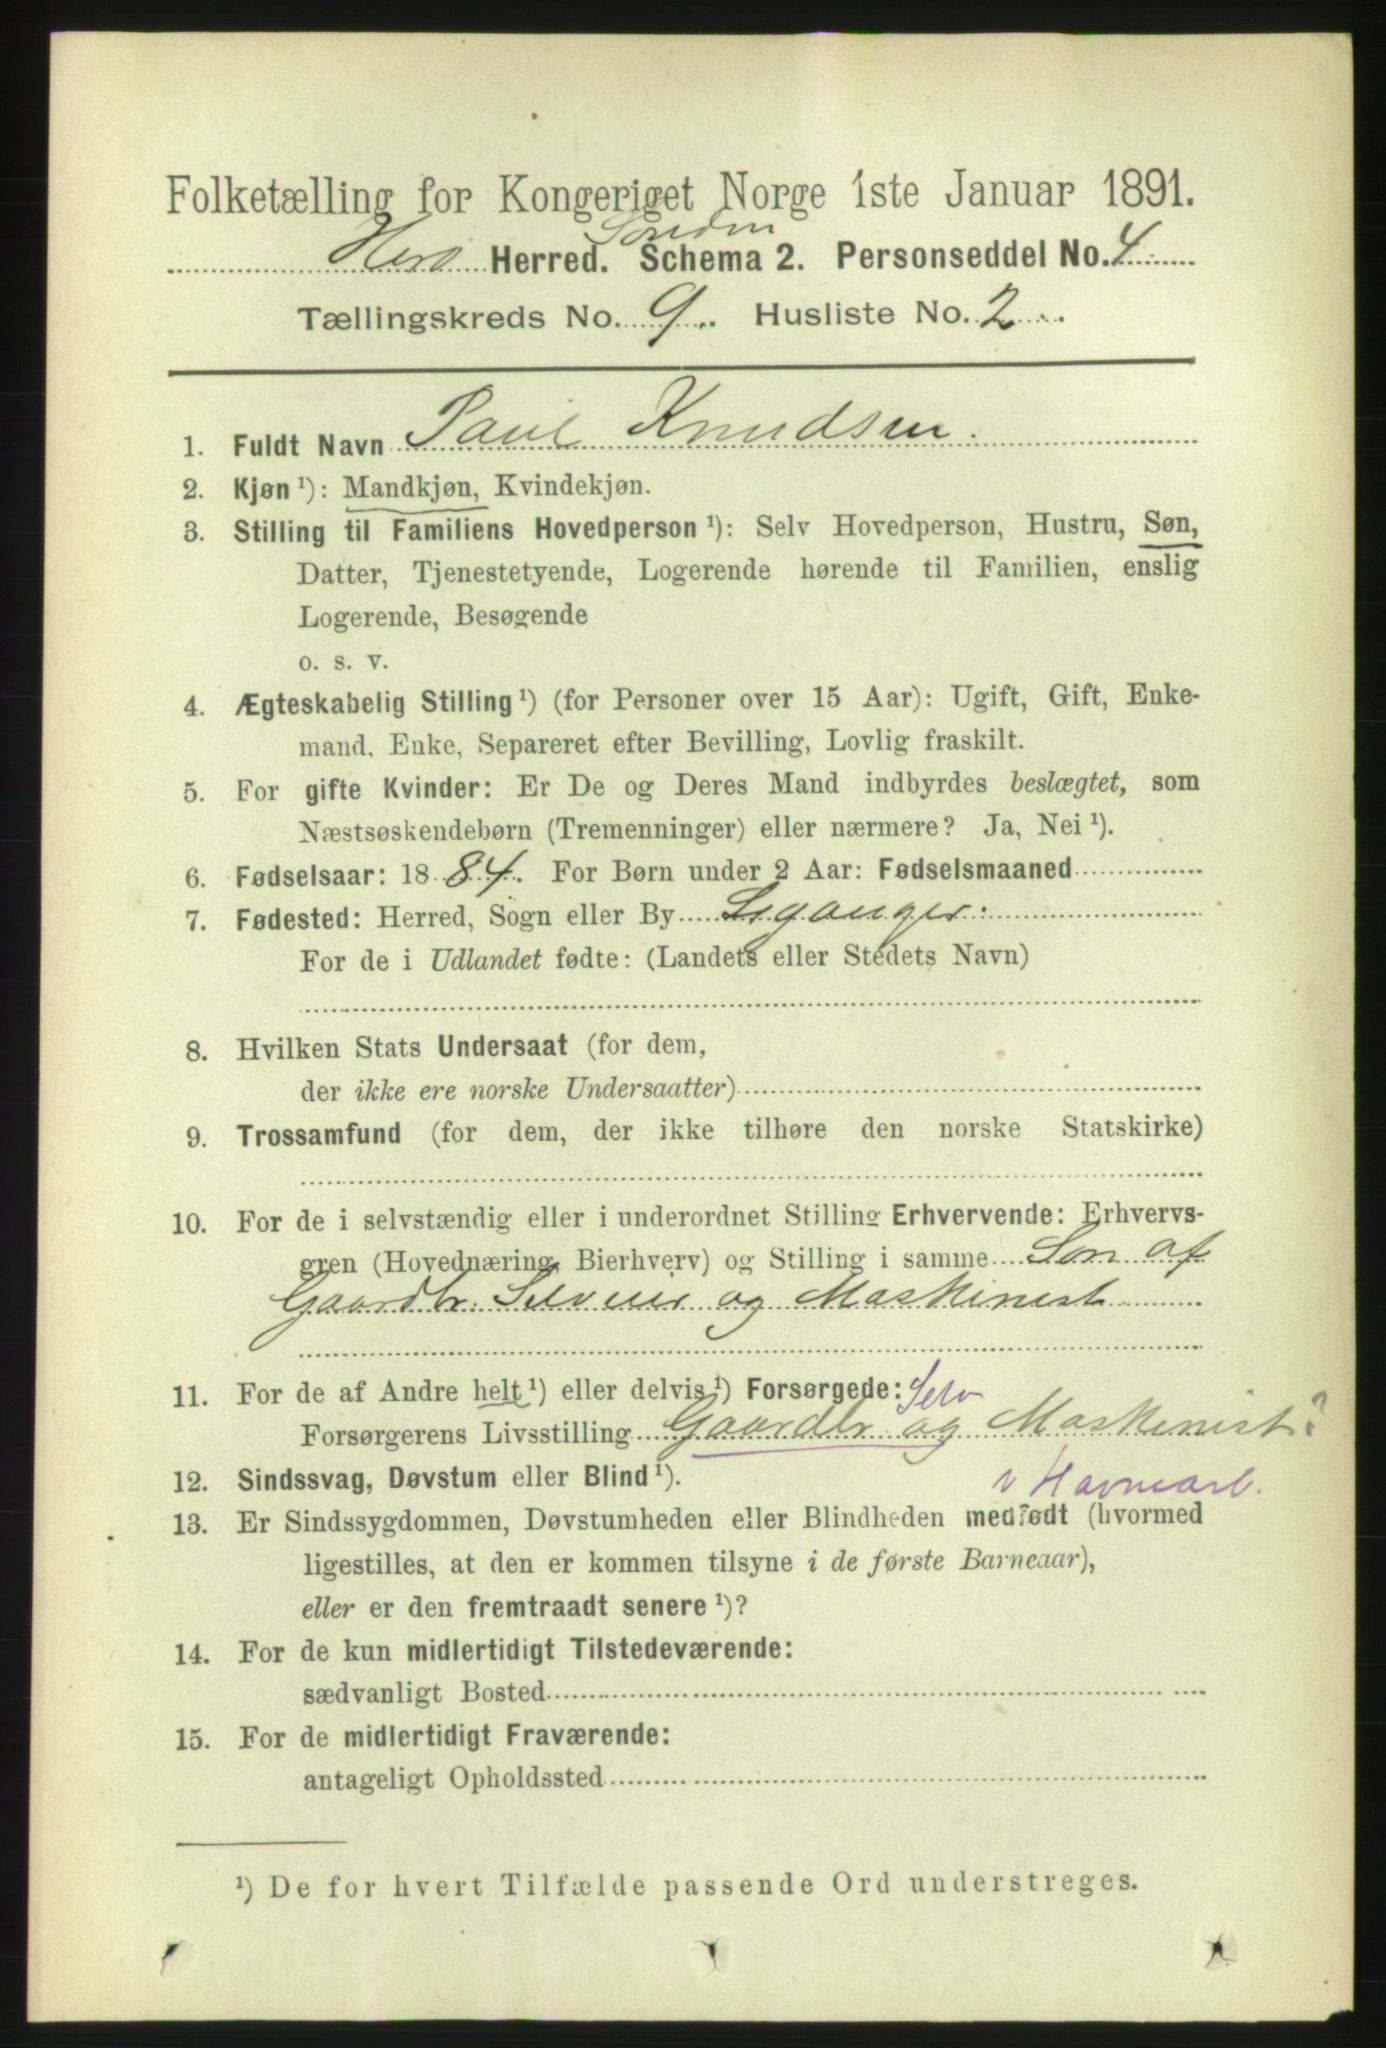 Folketælling for Kongeriget Norge 1ste Januar 1891.
Herø Herred. Schema 2. Personseddel No. 4
Tællingskreds No. 9. Husliste No. 2
1. Fuldt Navn Paul Knudsen.
2. Kjøn ¹): Mandkjøn, Kvindekjøn.
3. Stilling til Familiens Hovedperson ¹): Selv Hovedperson, Hustru, Søn,
Datter, Tjenestetyende, Logerende hørende til Familien, enslig
Logerende, Besøgende
o. s. v.
4. Ægteskabelig Stilling ¹) (for Personer over 15 Aar): Ugift, Gift, Enke-
mand, Enke, Separeret efter Bevilling, Lovlig fraskilt.
5. For gifte Kvinder: Er De og Deres Mand indbyrdes beslægtet, som
Næstsøskendebørn (Tremenninger) eller nærmere? Ja, Nei ¹).
6. Fødselsaar: 1884. For Børn under 2 Aar: Fødselsmaaned
7. Fødested: Herred, Sogn eller By
For de i Udlandet fødte: (Landets eller Stedets Navn)
8. Hvilken Stats Undersaat (for dem,
der ikke ere norske Undersaatter)
9. Trossamfund (for dem, der ikke tilhøre den norske Statskirke)
10. For de i selvstændig eller i underordnet Stilling Erhvervende: Erhvervs-
gren (Hovednæring, Bierhverv) og Stilling i samme Søn af
Gaardbr. Selveier og Maskinist
11. For de af Andre helt ¹) eller delvis ¹) Forsørgede: Selv
Forsørgerens Livsstilling Gaardbr og Maskinist?
12. Sindssvag, Døvstum eller Blind ¹).
v Havnearb.
13. Er Sindssygdommen, Døvstumheden eller Blindheden medfødt (hvormed
ligestilles, at den er kommen tilsyne i de første Barneaar),
eller er den fremtraadt senere ¹)?
14. For de kun midlertidigt Tilstedeværende:
sædvanligt Bosted
15. For de midlertidigt Fraværende:
antageligt Opholdssted
¹) De for hvert Tilfælde passende Ord understreges.